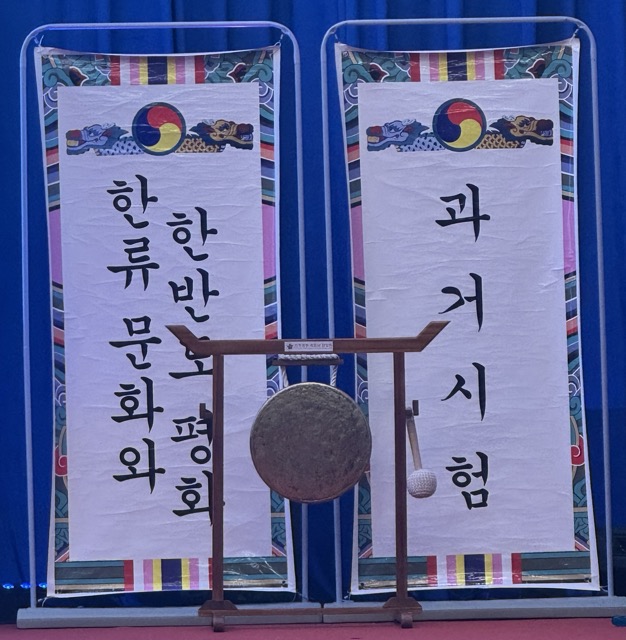 한류 문화와
한반도 평화
과거시험